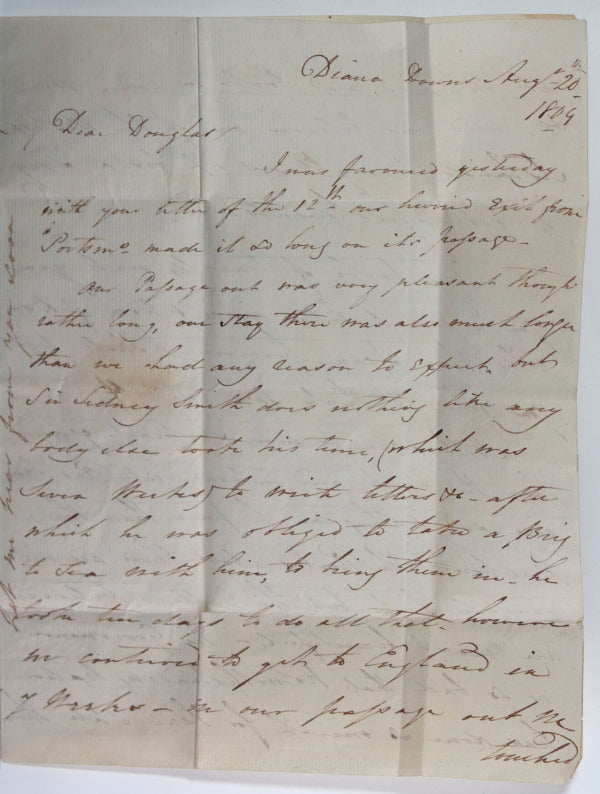 Diana Downs Augt 20th
1809
Dear Douglas
I was favoured yesterday
with your letter of the 12th our hurried Exit from
Portsmo made it so long on its passage -
Our Passage out was very pleasant though
rather long, our stay there was also much longer
than we had any reason to expect, but
Sir Sidney Smith does nothing like any
body else took his time, (which was
Seven Weeks) to write letters &c - after
which he was obliged to take a Brig
to Sea with him, to bring them in - he
took ten days to do all that - however
we contrived to get to England in
7 Weeks - in our passage out we
touched
let me hear from you soon